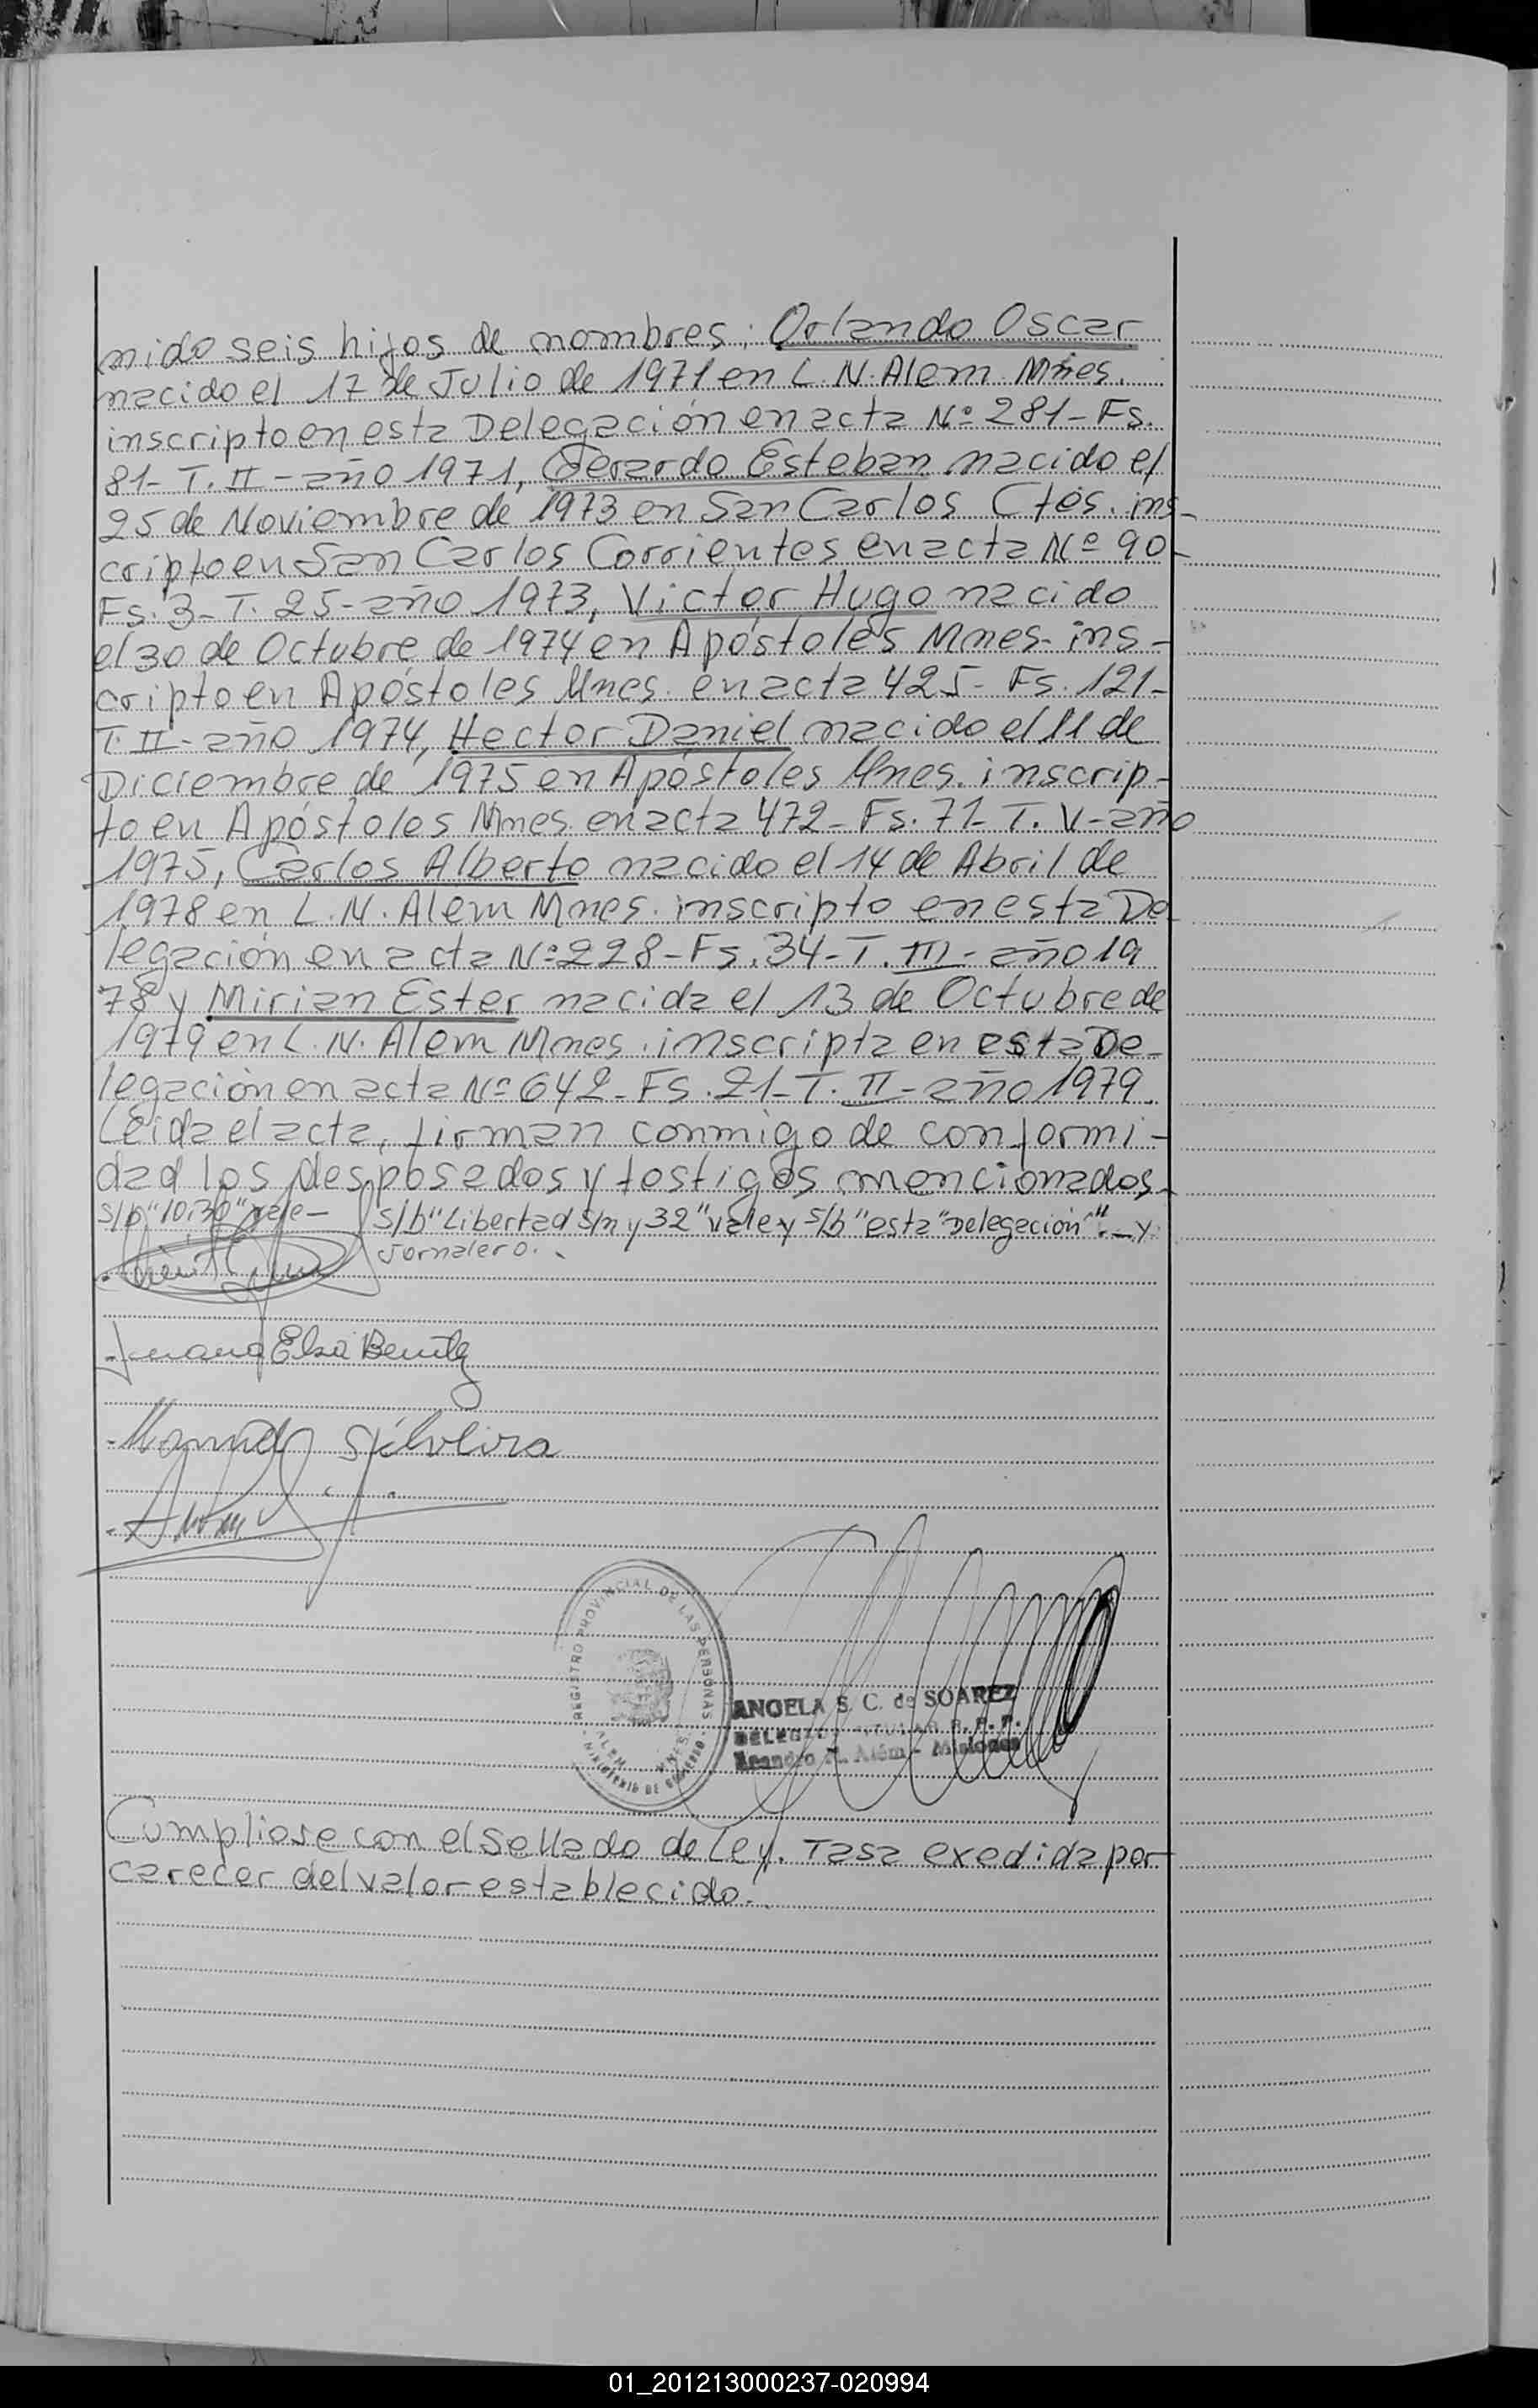 nido seis hijos de nombres: Orlando Oscar
nacido el 17 de Julio de 1971 en L. N. Alem Mnes.
inscripto en esta Delegación en acta Nº 281 - Fs.
81 - T. II - año 1971, Gerardo Esteban nacido el
25 de Noviembre de 1973 en San Carlos Ctes. ins-
cripto en San Carlos Corrientes en acta Nº 90 -
Fs. 3 - T. 25 - año 1973, Victor Hugo nacido
el 30 de Octubre de 1974 en Apóstoles Mnes. ins-
cripto en Apóstoles Mnes. en acta 425 - Fs. 121 -
T. II - año 1974, Hector Daniel nacido el 11 de
Diciembre de 1975 en Apóstoles Mnes. inscrip-
to en Apóstoles Mnes en acta 472 - Fs. 71 - T. V - año
1975, Carlos Alberto nacido el 14 de Abril de
1978 en L. N. Alem Mnes. inscripto en esta De
legación en acta Nº 228 - Fs. 34 - T. III - año 19
78 y Mirian Ester nacida el 13 de Octubre de
1979 en L. N. Alem Mnes. inscripta en esta De-
legación en acta Nº 642 - FS. 21 - T. II - año 1979.
Leida el acta, firman conmigo de conformi-
dad los desposados y testigos mencionados.
s/b "10,30" vale - s/b "Libertad s/n y 32" vale y s/b "esta" Delegación". - y
Jornalero.
Juana Elsa Benitez
Manuel Silveira
REGISTRO PROVINCIAL DE LAS PERSONAS
ALEM MNES
MINISTERIO DE GOBIERNO
ANGELA S. C. de SOAREZ
DELEGADO TITULAR R. P. P.
Leandro N. Alem - Misiones
Cumpliose con el Sellado de Ley. Tasa exedida por
carecer del valor establecido.
01_201213000237-020994